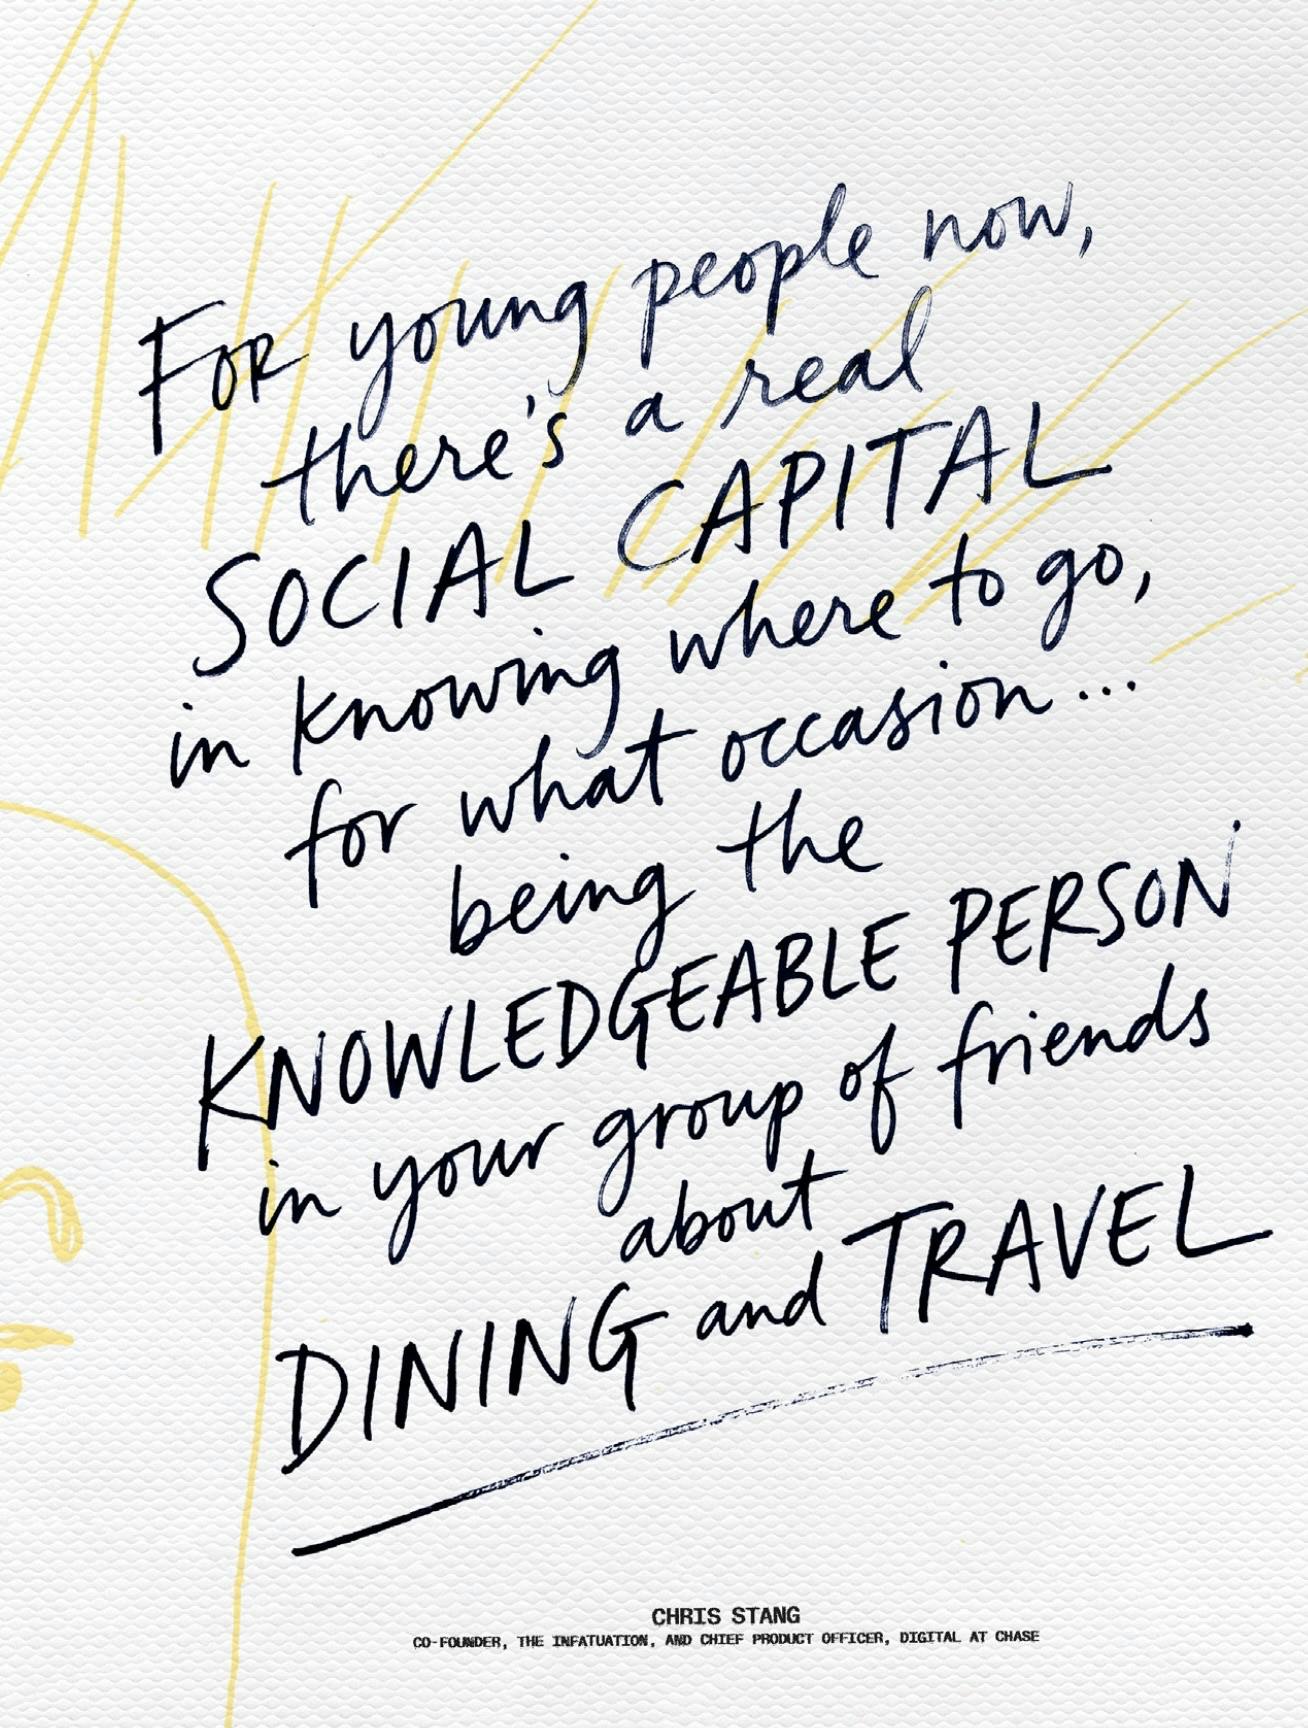 FOR young people now,
there's a real
SOCIAL CAPITAL
in knowing where to go,
for what occasion...
being the
KNOWLEDGEABLE PERSON
in your group of friends
about
DINING and TRAVEL
CHRIS STANG
CO-FOUNDER, THE INFATUATION, AND CHIEF PRODUCT OFFICER, DIGITAL AT CHASE